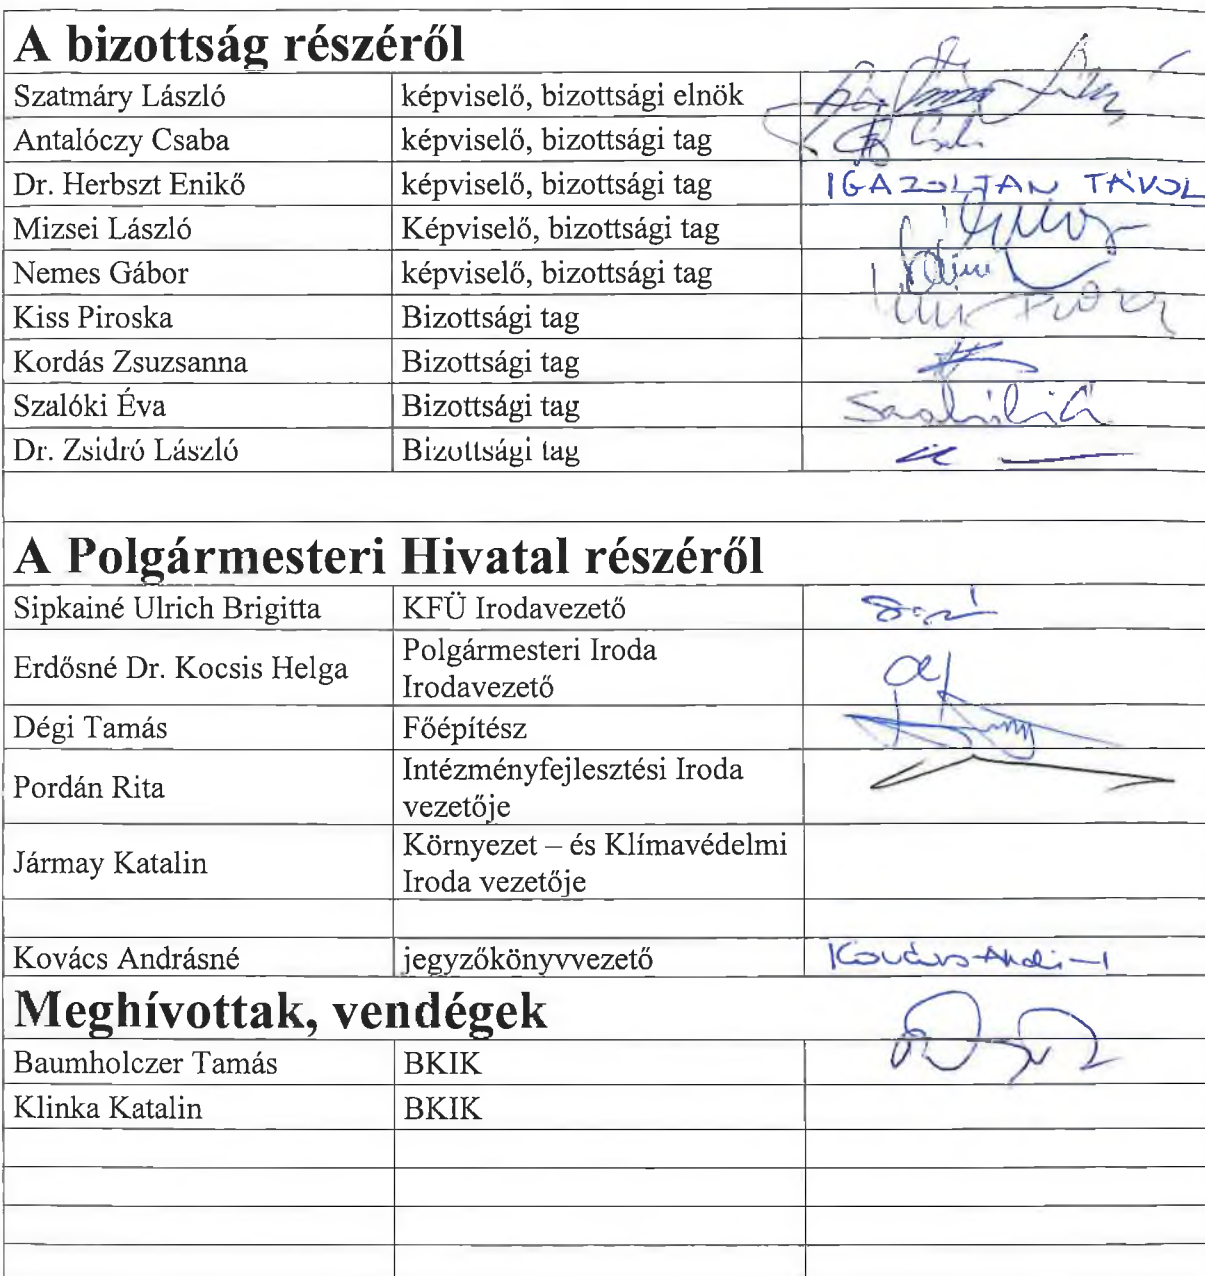 A bizottság részéről
Szatmáry László képviselő, bizottsági elnök
Antalóczy Csaba képviselő, bizottsági tag
Dr. Herbszt Enikő képviselő, bizottsági tag IGAZOLTAN TÁVOL
Mizsei László Képviselő, bizottsági tag
Nemes Gábor képviselő, bizottsági tag
Kiss Piroska Bizottsági tag
Kordás Zsuzsanna Bizottsági tag
Szalóki Éva Bizottsági tag
Dr. Zsidró László Bizottsági tag
A Polgármesteri Hivatal részéről
Sipkainé Ulrich Brigitta KFÜ Irodavezető
Erdősné Dr. Kocsis Helga Polgármesteri Iroda
Irodavezető
Dégi Tamás Főépítész
Pordán Rita Intézményfejlesztési Iroda
vezetője
Jármay Katalin Környezet – és Klímavédelmi
Iroda vezetője
Kovács Andrásné jegyzőkönyvvezető
Meghívottak, vendégek
Baumholczer Tamás BKIK
Klinka Katalin BKIK